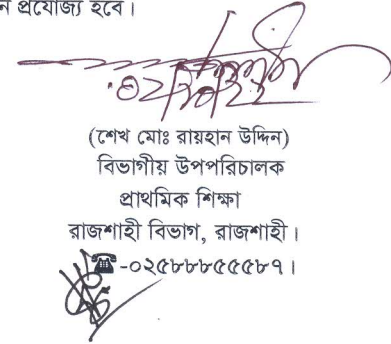 ন প্রযোজ্য হবে।
(শেখ মোঃ রায়হান উদ্দিন)
বিভাগীয় উপপরিচালক
প্রাথমিক শিক্ষা
রাজশাহী বিভাগ, রাজশাহী।
☎-০২৫৮৮৮৫৫৫৮৭।